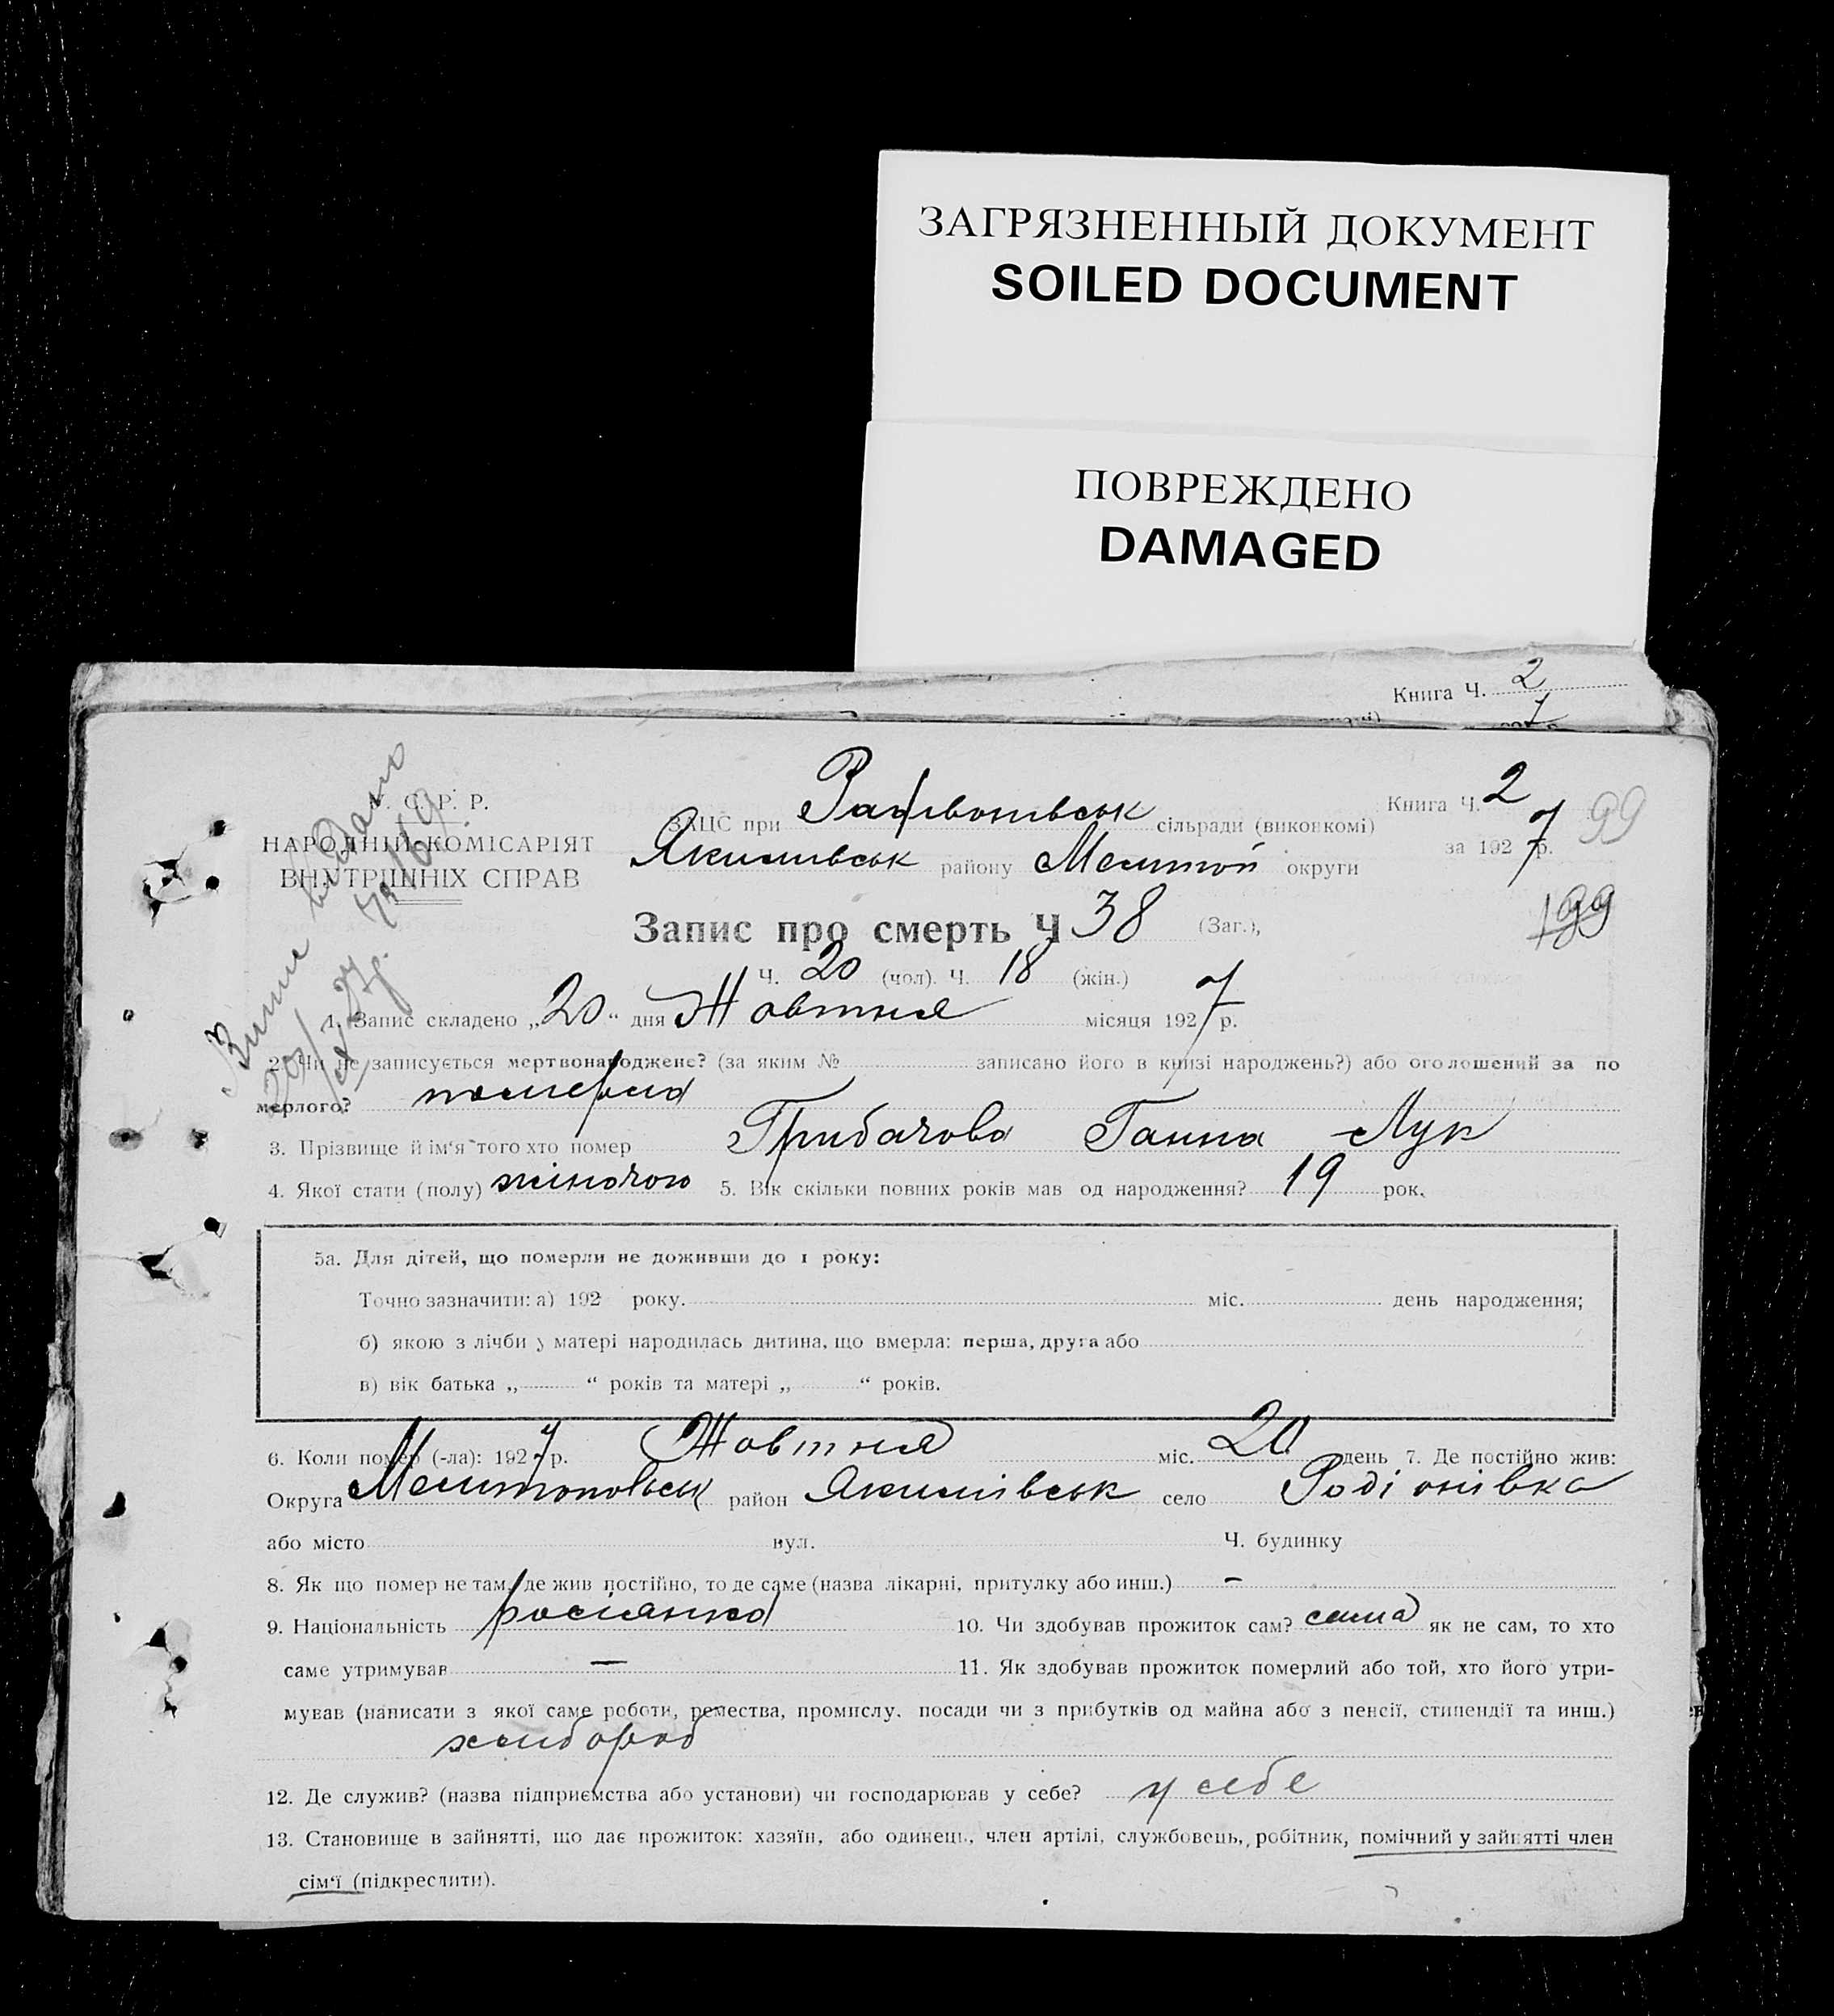 ЗАГРЯЗНЕННЫЙ ДОКУМЕНТ
SOILED DOCUMENT
ПОВРЕЖДЕНО
DAMAGED
Книга Ч. 2
7
С. Р. Р.
НАРОДНІЙ КОМІСАРІЯТ
ВНУТРІШНІХ СПРАВ
Випис видано
20/X 27 р.
ЗАЦС при сільради (виконкомі)
Якимівськ району Мелітой округи
Книга Ч. 2
за 1927 р.
99
199
Запис про смерть Ч 38 (Заг.),
Ч. 20 (чол). Ч. 18 (жін.)
1. Запис складено „20“ дня Жовтня місяця 1927 р.
2. Чи не записується мертвонароджене? (за яким № записано його в книзі народжень?) або оголошений за по
мерлого? померла
3. Прізвище й ім‘я того хто помер Грибачова Ганна Лук
4. Якої стати (полу) жіночою 5. Вік скільки повних років мав од народження? 19 рок.
5а. Для дітей, що померли не доживши до 1 року:
Точно зазначити: а) 192 року. міс. день народження;
б) якою з лічби у матері народилась дитина, що вмерла: перша, друга або
в) вік батька „ “ років та матері „ “ років.
6. Коли помер (-ла): 1927 р. Жовтня міс. 20 день 7. Де постійно жив:
Округа Мелитопольськ район Якимівськ село Родіонівка
або місто вул. Ч. будинку
8. Як що помер не там, де жив постійно, то де саме (назва лікарні, притулку або инш.) –
9. Національність росіянка 10. Чи здобував прожиток сам? сама як не сам, то хто
саме утримував — 11. Як здобував прожиток померлий або той, хто його утри-
мував (написати з якої саме роботи, ремества, промислу, посади чи з прибутків од майна або з пенсії, стипендії та инш.)
хлибороб
12. Де служив? (назва підприємства або установи) чи господарював у себе? у себе
13. Становище в зайнятті, що дає прожиток: хазяїн, або одинець, член артілі, службовець, робітник, помічний у зайнятті член
сім‘ї (підкреслити).